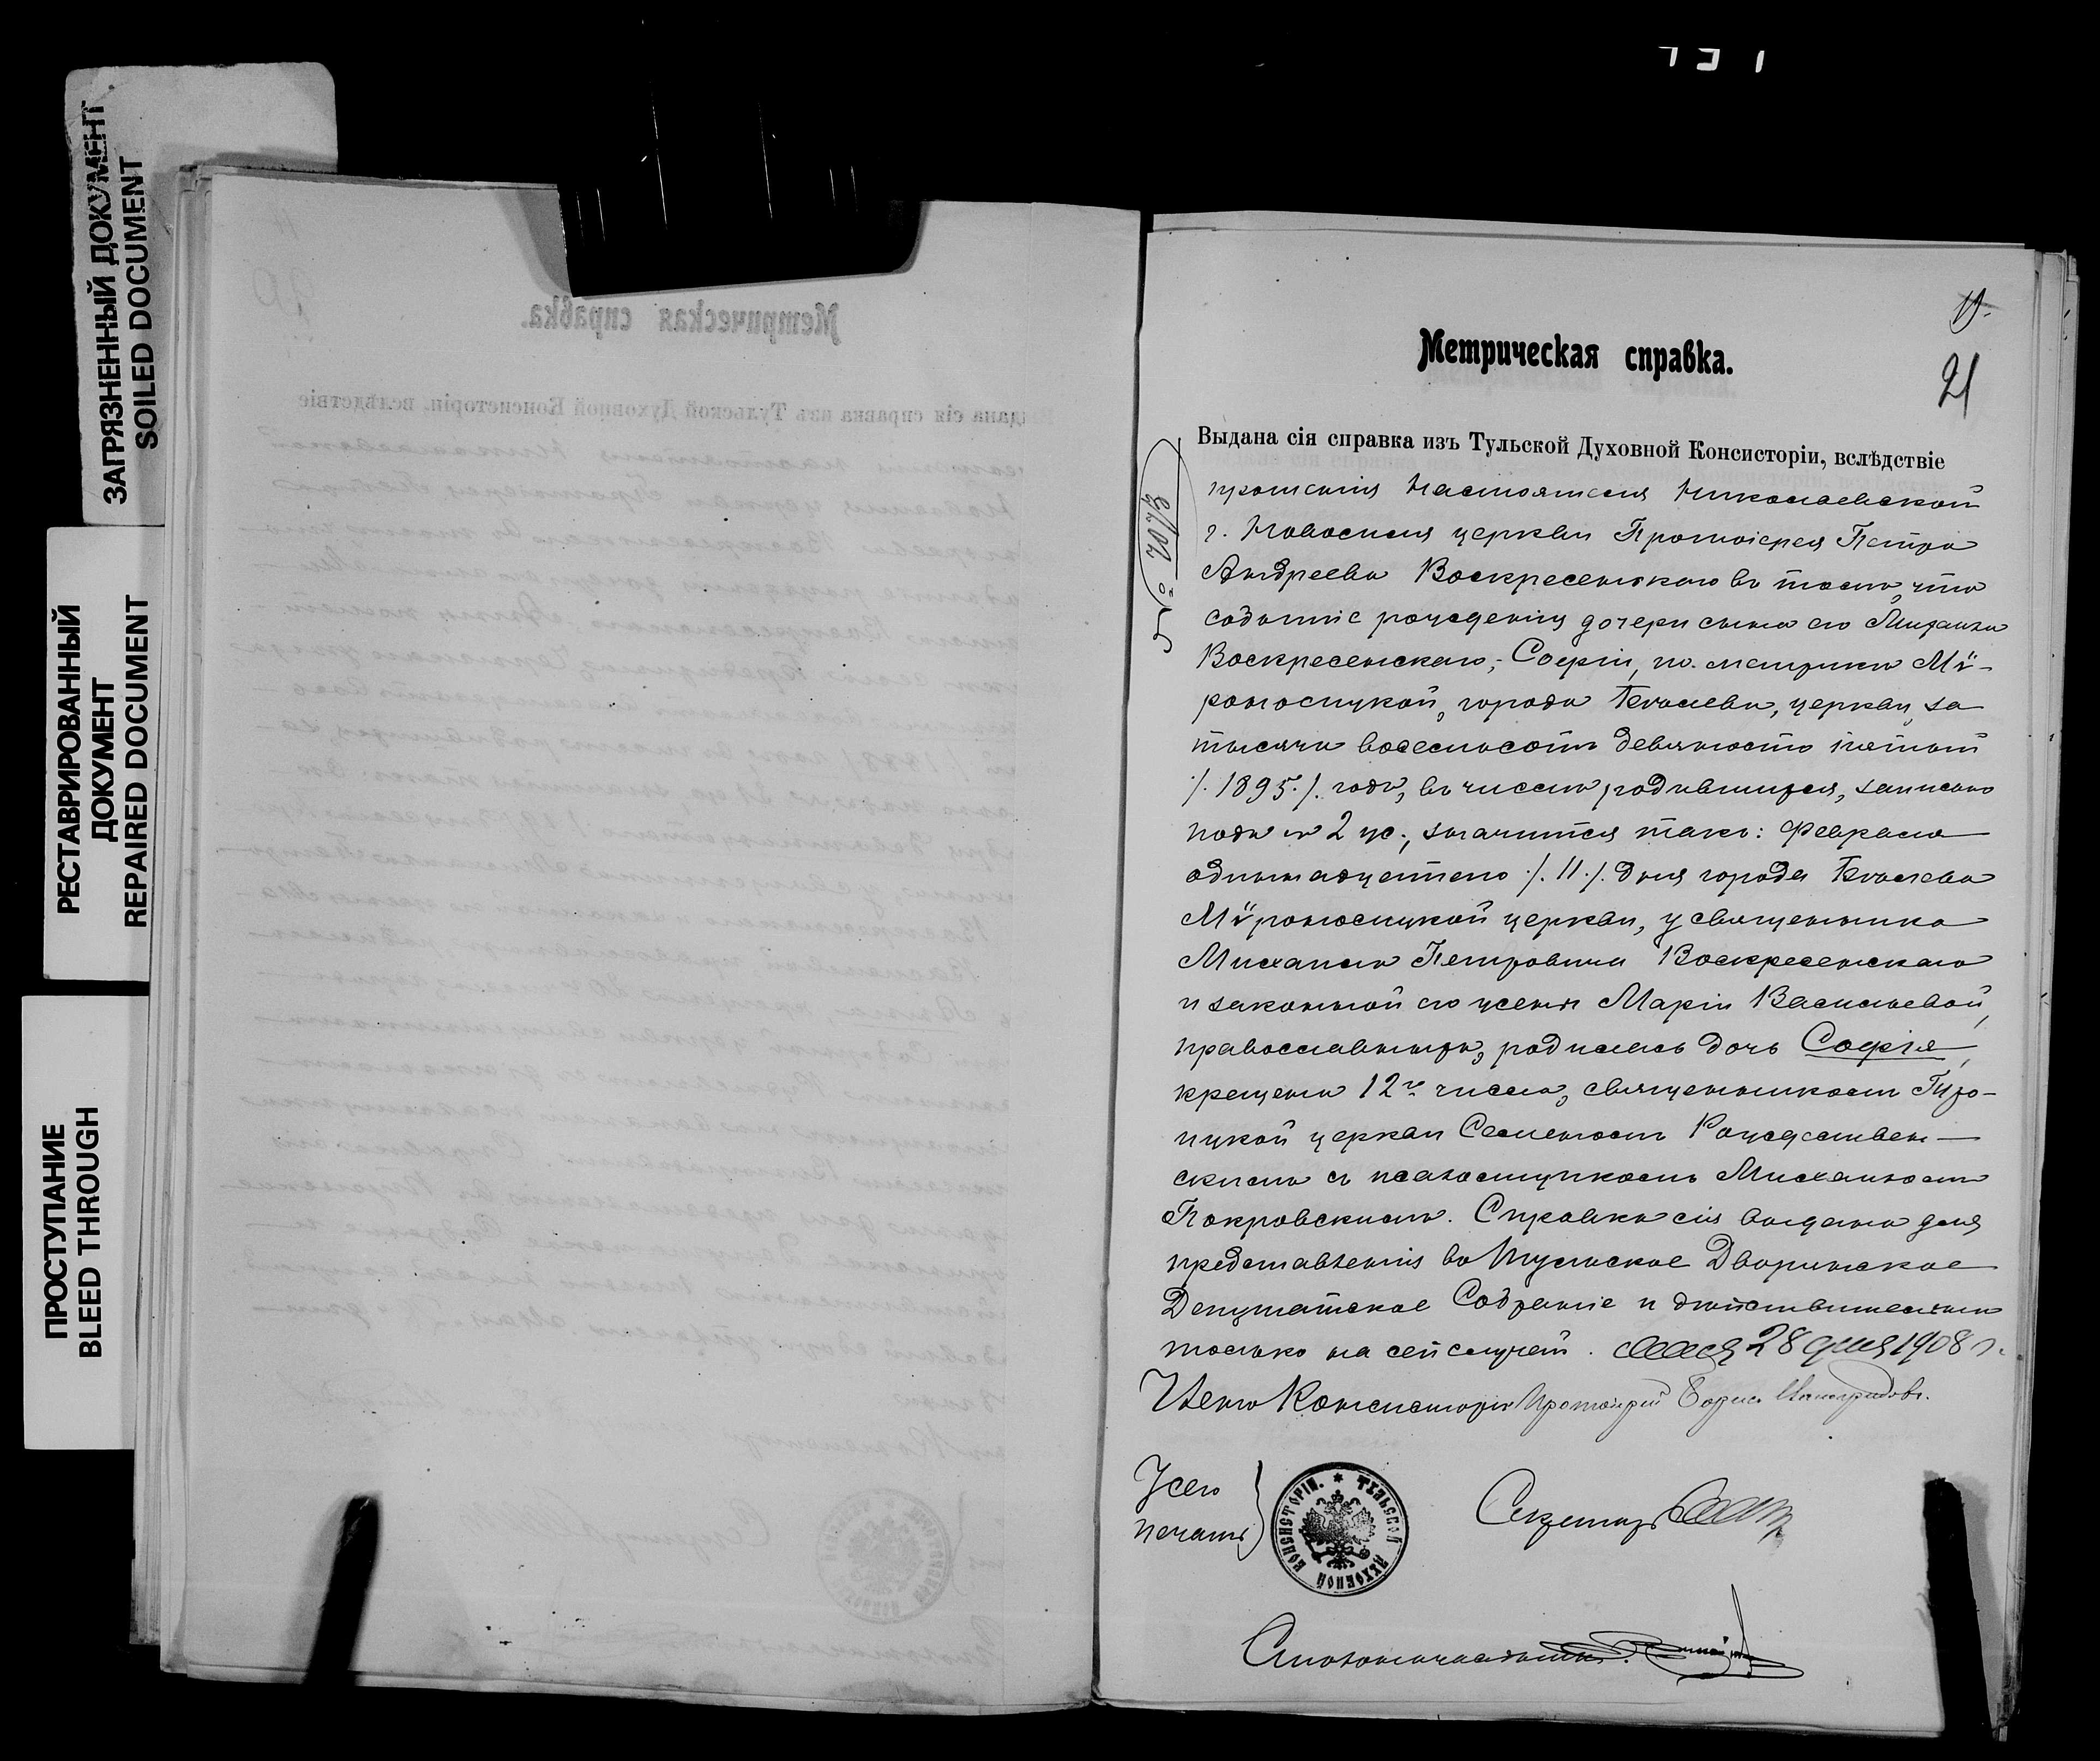 ЗАГРЯЗНЕННЫЙ ДОКУМЕНТ
SOILED DOCUMENT
РЕСТАВРИРОВАННЫЙ
ДОКУМЕНТ
REPAIRED DOCUMENT
ПРОСТУПАНИЕ
BLEED THROUGH
21
Метрическая справка.
№ 7073
Выдана сія справка изъ Тульской Духовной Консисторіи, вслѣдствіе
прошенія Настоятеля Николаевской
г. Новосиля церкви Протоіерея Петра
Андреева Воскресенскаго въ томъ, что
событіе рожденія дочери сына его Михаила
Воскресенскаго,- Софіи, по метрикѣ Мѵ-
роносицкой, города Бѣлева, церкви, за
тысяча восемьсотъ девяносто пятый
/.1895./. годъ, въ числѣ родившихся, записано
подъ № 2 ж., значится такъ: Февраля
одиннадцатаго /.11./. дня города Бѣлева
Мѵроносицкой церкви, у священника
Михаила Петровича Воскресенскаго
и законной его жены Маріи Васильевой,
православныхъ, родилась дочь Софія,
крещена 12го числа, священникомъ Тро-
ицкой церкви Семеномъ Рождествен-
скимъ съ псаломщикомъ Михаиломъ
Покровскимъ. Справка сія выдана для
представленія въ Тульское Дворянское
Депутатское Собраніе и дѣйствительна
только на сей случай. 28 дня 1908 г.
Членъ Консисторіи Протоіерей Борисъ
У сего
печать
ТУЛЬСКОЙ ДУХОВНОЙ КОНСИСТОРІИ.
Секретарь
Столоначальникъ